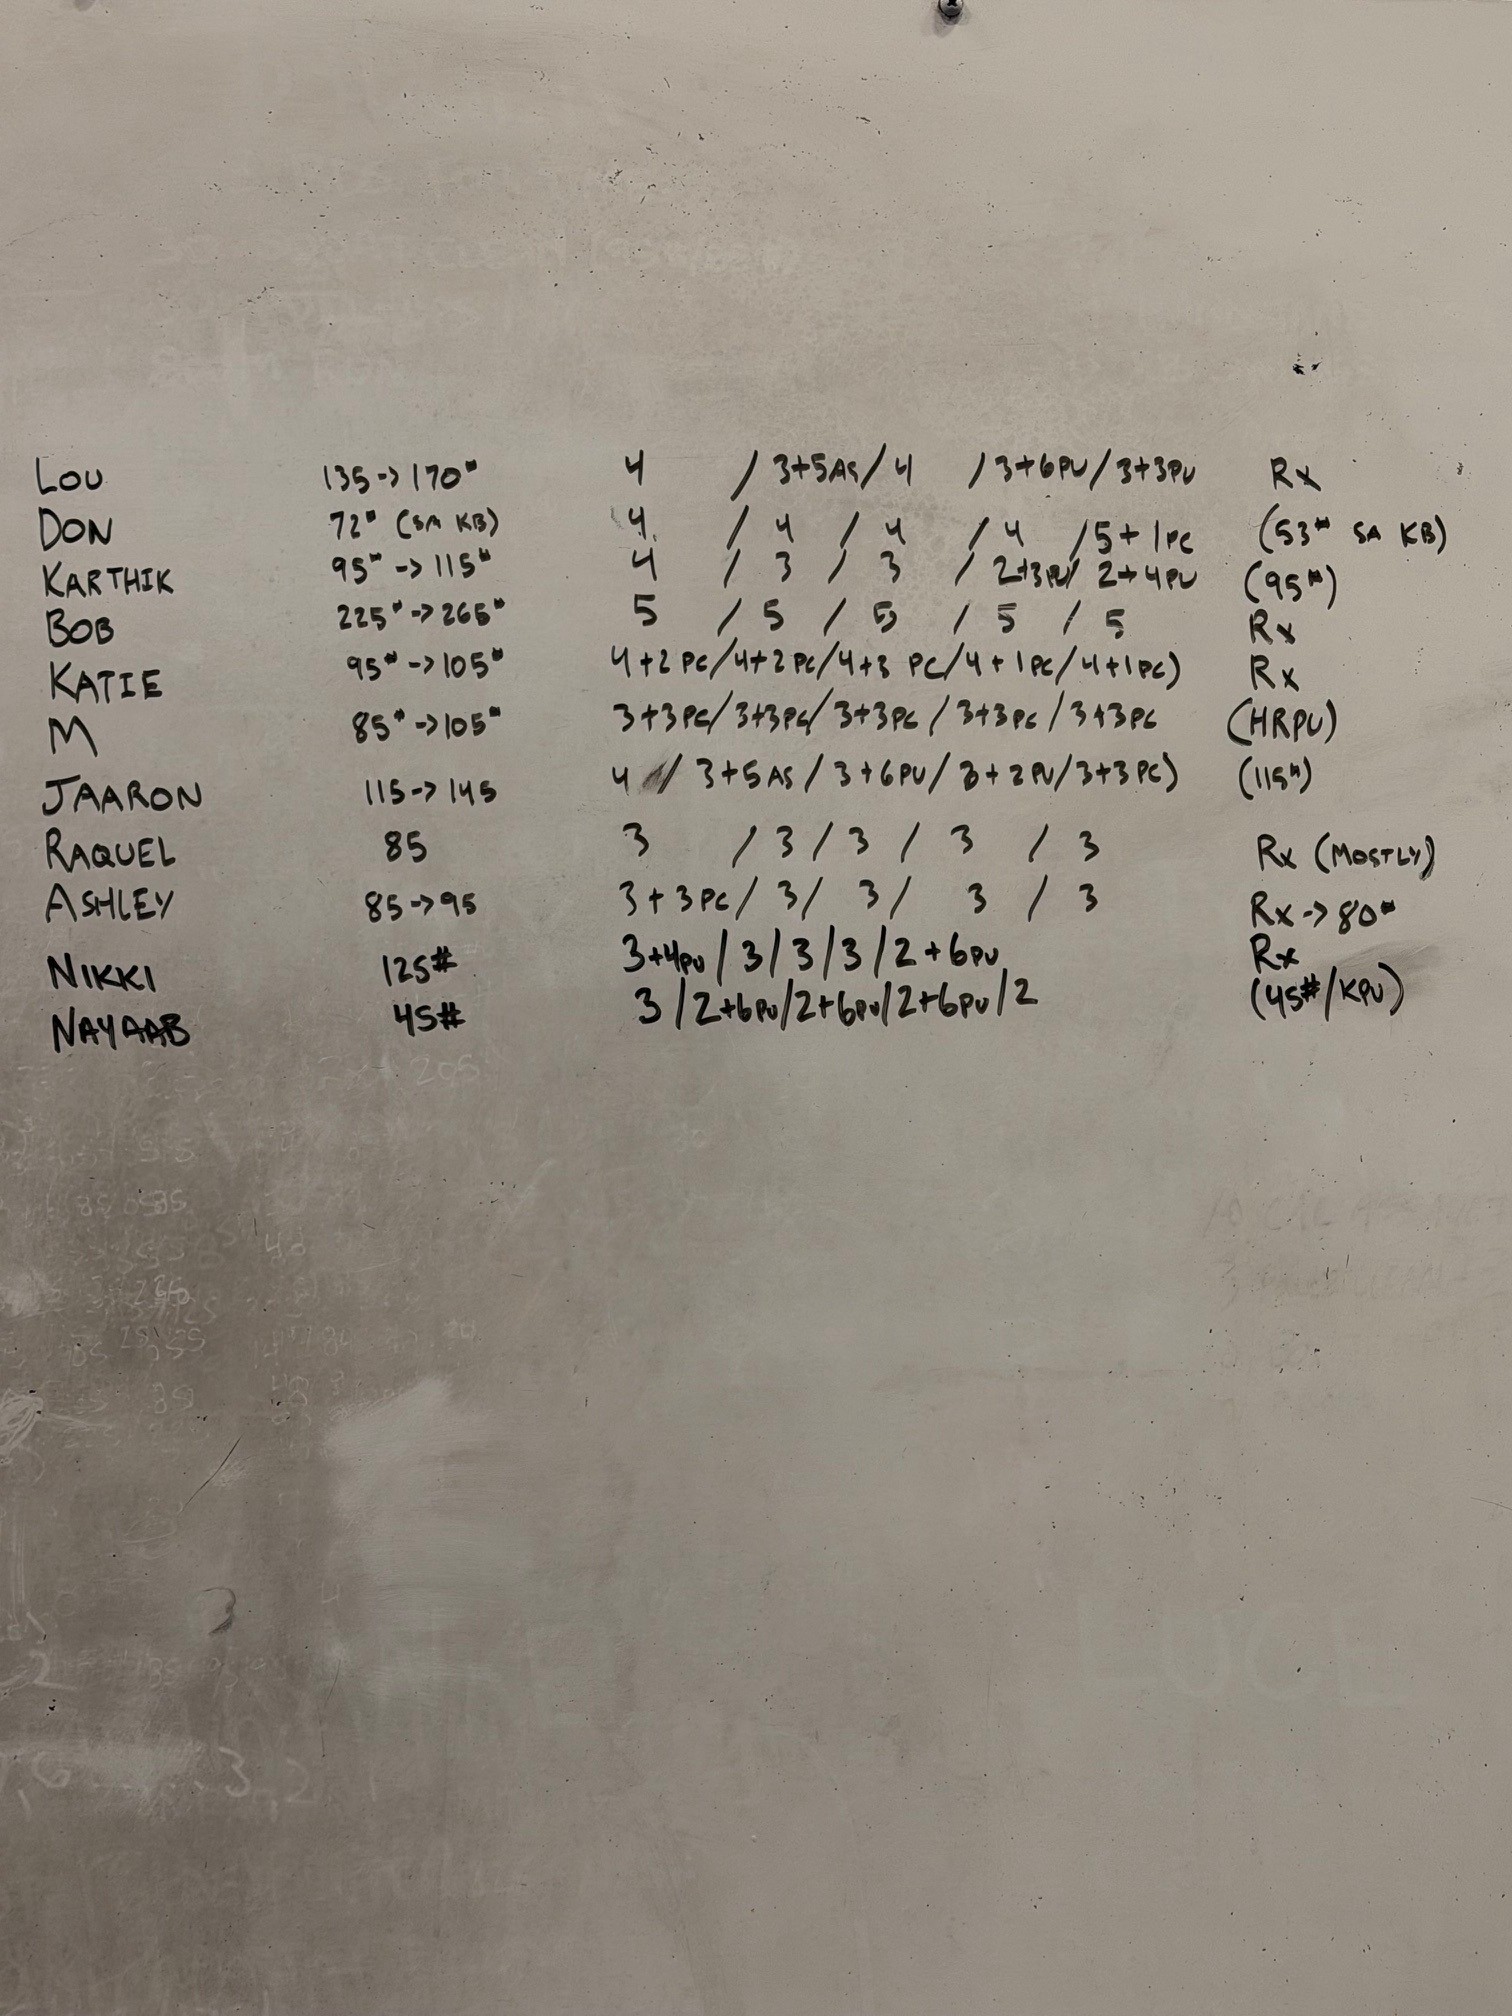 LOU 135->170# 4 / 3+5AS / 4 / 3+6PU / 3+3PU Rx
DON 72# (SA KB) 4 / 4 / 4 / 4 / 5+1PC (53# SA KB)
KARTHIK 95#->115# 4 / 3 / 3 / 2+3PU / 2+4PU (95#)
BOB 225#->265# 5 / 5 / 5 / 5 / 5 Rx
KATIE 95#->105# 4+2PC/4+2PC/4+3PC/4+1PC/4+1PC) Rx
M 85#->105# 3+3PC/3+3PC/3+3PC/3+3PC/3+3PC (HRPU)
JAARON 115->145 4 / 3+5AS / 3+6PU / 3+2PU / 3+3PC) (115#)
RAQUEL 85 3 / 3 / 3 / 3 / 3 Rx (MOSTLY)
ASHLEY 85->95 3+3PC / 3 / 3 / 3 / 3 Rx->80#
NIKKI 125# 3+4PU / 3 / 3 / 3 / 2+6PU Rx
NAYAAB 45# 3 / 2+6PU / 2+6PU / 2+6PU / 2 (45#/KPU)